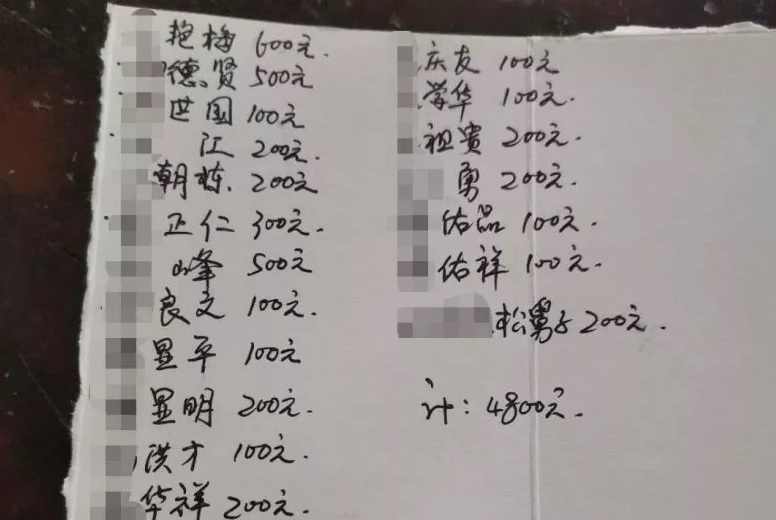 艳梅 600元.
德贤 500元
世国 100元
江 200元.
朝栋. 200元
正仁 300元.
峰 500元
良文 100元.
显平 100元
显明 200元.
洪才 100元.
华祥 200元.
庆友 100元
学华 100元.
祖贵 200元.
勇 200元.
佑品 100元.
佑祥 100元.
松舅子 200元.
计: 4800元.